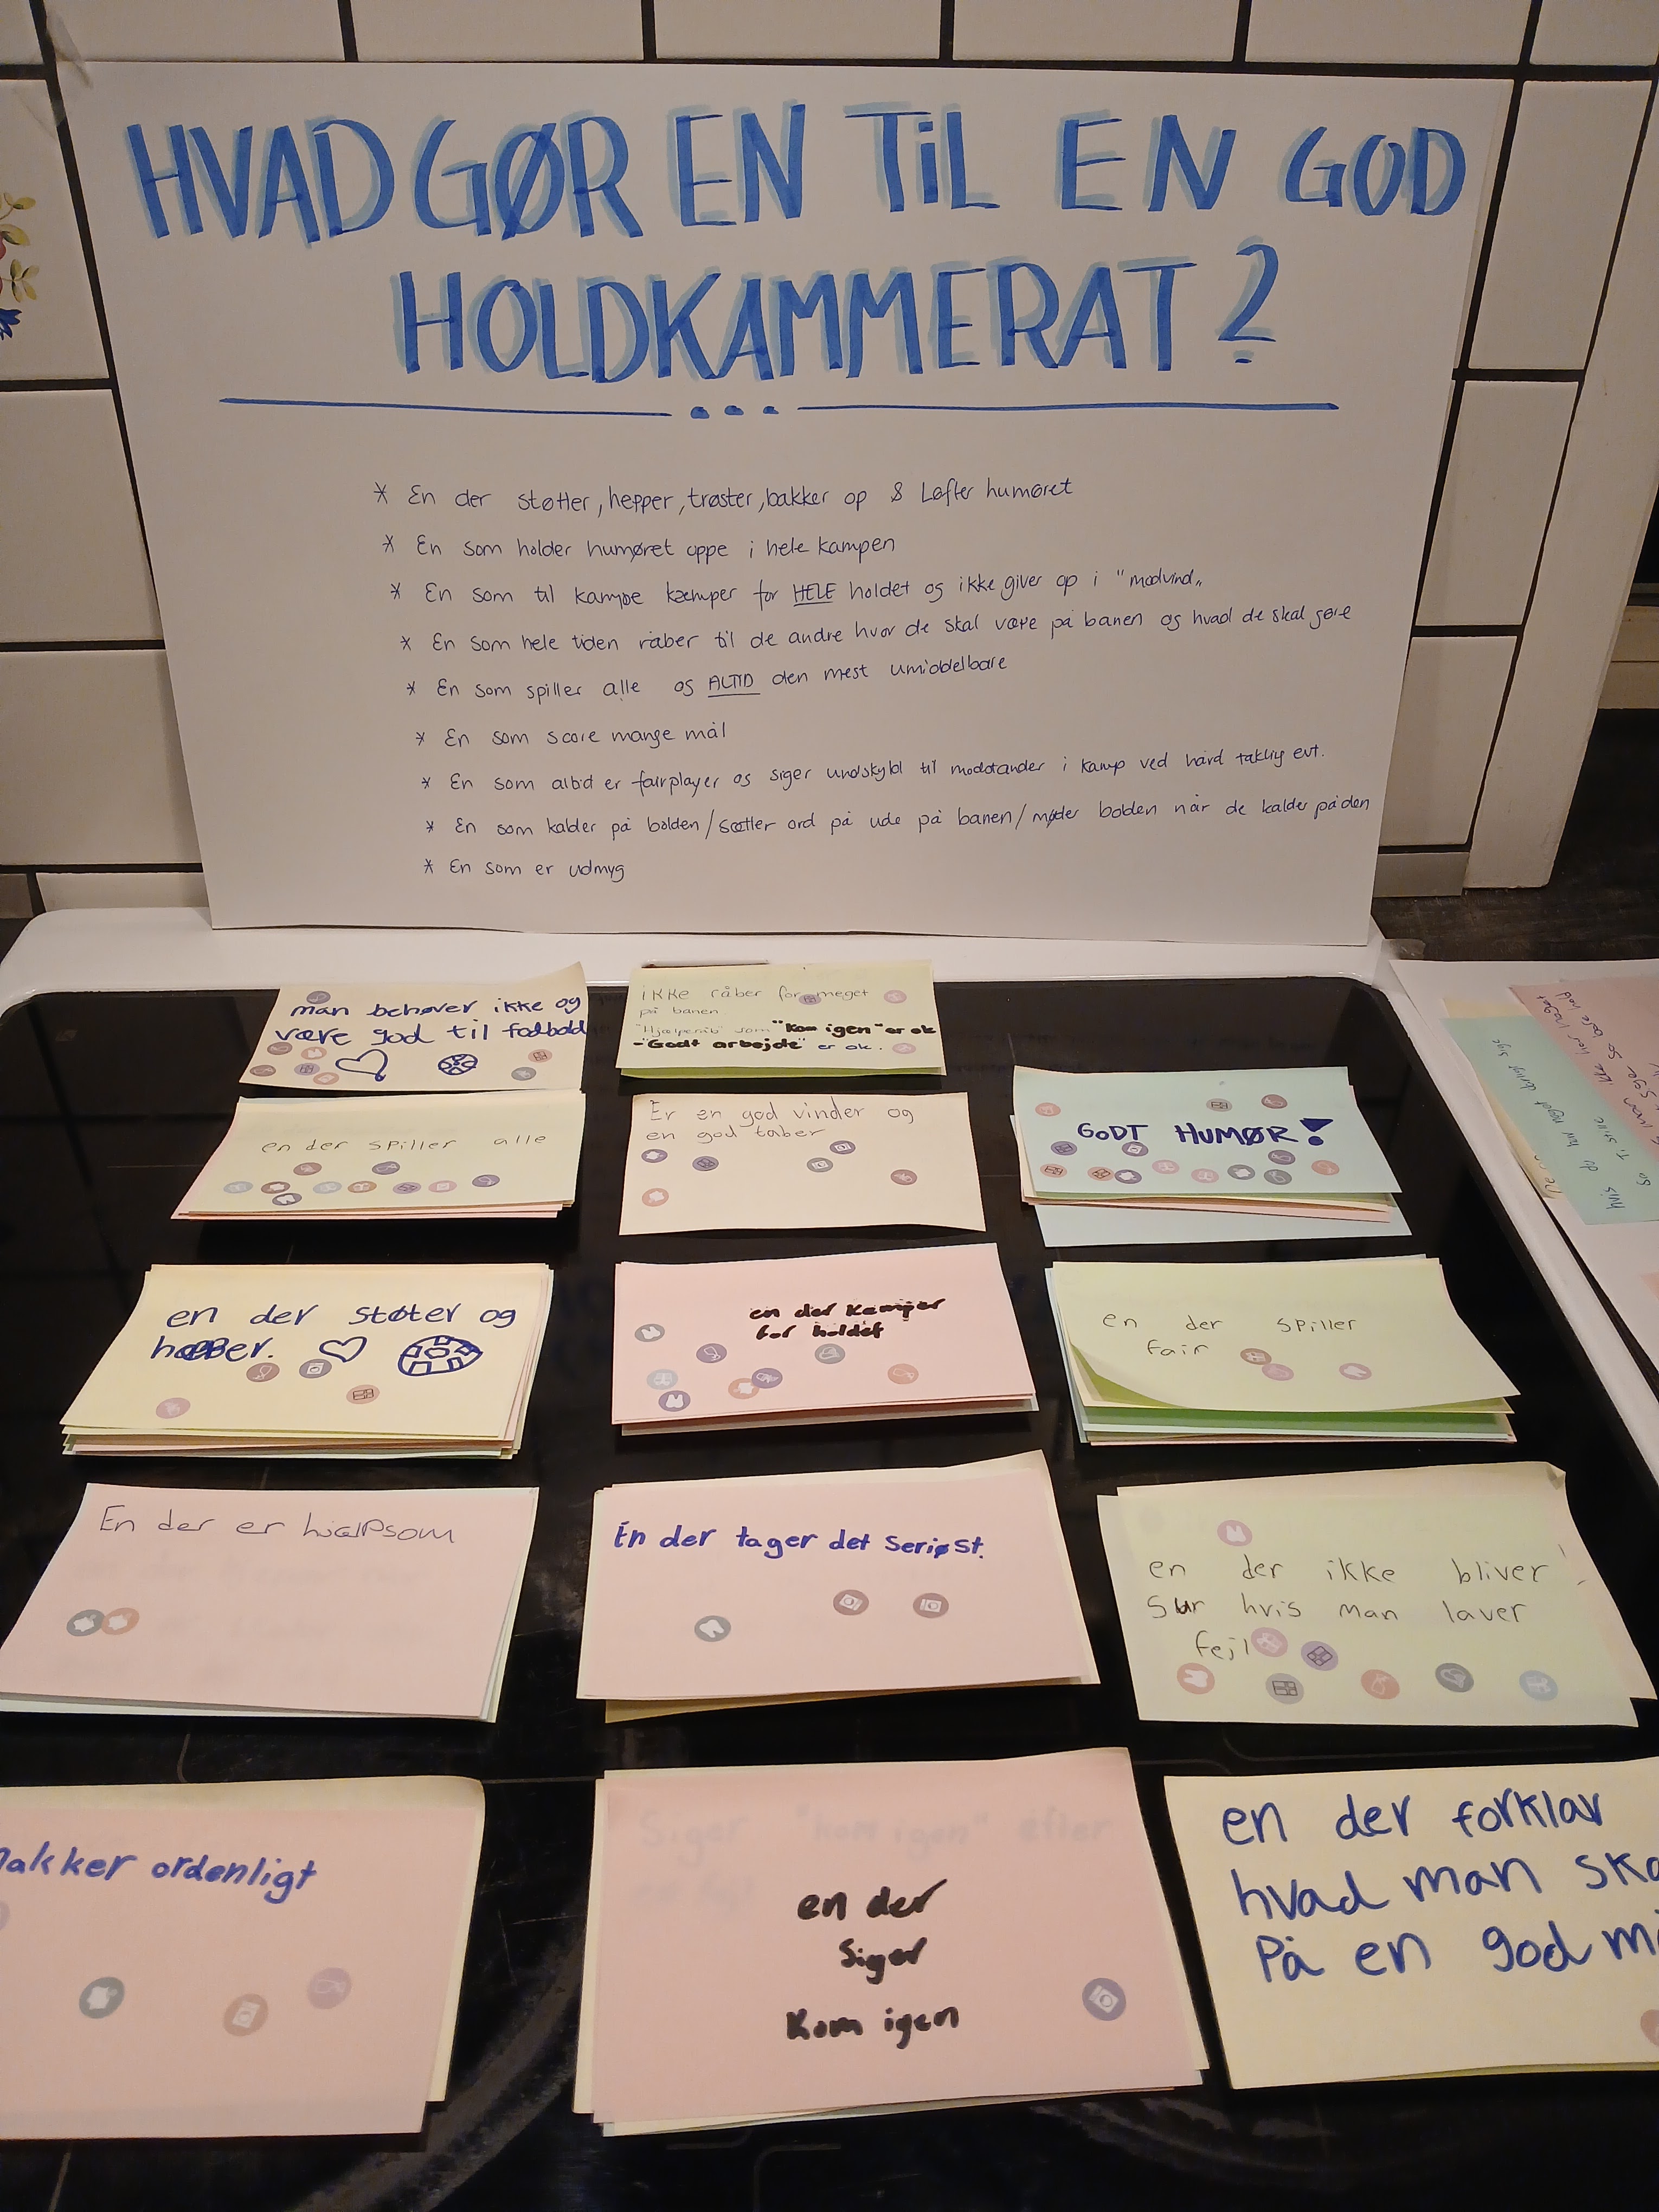 HVAD GØR EN TiL EN GOD
HOLDKAMMERAT?
* En der støtter, hepper, trøster, bakker op & Løfter humøret
* En som holder humøret oppe i hele kampen
* En som til kampe kæmper for HELE holdet og ikke giver op i "modvind„
* En som hele tiden råber til de andre hvor de skal være på banen og hvad de skal gøre
* En som spiller alle og ALTID den mest umiddelbare
* En som score mange mål
* En som altid er fairplayer og siger undskyld til modstander i kamp ved hård takling evt.
* En som kalder på bolden/sætter ord på ude på banen/møder bolden når de kalder på den
* En som er udmyg
man behøver ikke og
være god til fodbold
ikke råber for meget
på banen
som "Kom igen" er ok
- "Godt arbejde" er ok.
en der spiller alle
Er en god vinder og
en god taber
GODT HUMØR!
en der støter og
hepper.
en der kæmper
for holdet
en der spiller
fair
En der er hjælpsom
Én der tager det seriøst.
en der ikke bliver
sur hvis man laver
fejl
ordenligt
Siger "kom igen" efter
en der
siger
Kom igen
en der forklar
hvad man
På en god